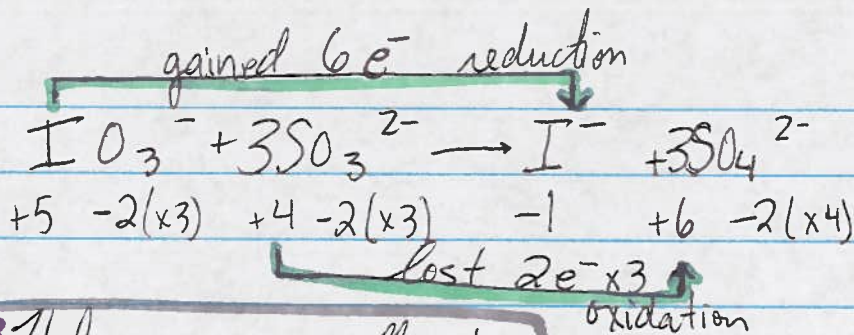 gained 6e⁻ reduction
IO₃⁻ + 3SO₃²⁻ → I⁻ + 3SO₄²⁻
+5 -2(x3) +4 -2(x3) -1 +6 -2(x4)
lost 2e⁻x3
oxidation